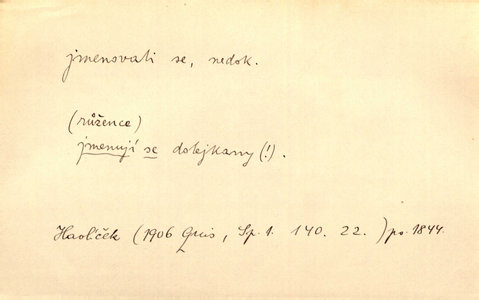 jmenovati se, nedok.
(růžence)
jmenují se dolejkamy (!).
Havlíček (1906 Quis, Sp. 1. 140. 22.) po 1844.